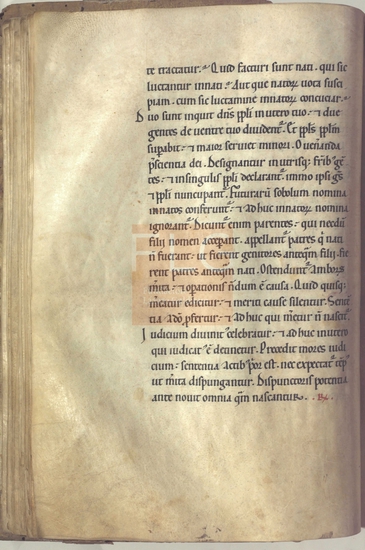 te tractatur. Quid facturi sunt nati. qui sic
luctantur innati. Aut que natoꝝ uota susci
piam. cum sic luctamine innatoꝝ concuciar.
Duo sunt inquit dn̄s pp̄li in utero tuo. ⁊ due
gentes de uentre tuo diuident᷑. Et pp̄ls pp̄lm
supabit᷑. ⁊ maior seruiet minori. O ueneranda
p̄scientia dei. Designantur in utrisq; frīb; gē
tes. ⁊ in singulis pp̄li declarant᷑. immo ipsi gē
⁊ pp̄li nuncupant᷑. Futuraꝝ sobolum nomina
innatos conferunt᷑. ⁊ ad huc innatoꝝ nomina
ignorant᷑. Dicunt᷑ enim parentes. qui nedū
filii nomen acceperant. appellant᷑ patres q̄ nati
n̄ fuerant. ut fierent genitores anteqm̄ filii. fie
rent patres anteqm̄ nati. Ostendunt᷑ amboꝝ
m̄ita. ⁊ opationis n̄dum ē causa. Quid quisq;
m̄eatur edicitur. ⁊ meriti cause silentur. Senten
tia. Ado p̄fertur. ⁊ Ad huc qui m̄etur n̄ nascit᷑.
Iudicium diuinit᷑ celebratur. ⁊ ad huc in utero
qui iudicat᷑ ē detinetur. Precedit mores iudi
cium. sententia Actib; p̄or est. nec expectat᷑ tēp᷒
ut m̄ita dispungantur. Dispunctoris potentia
ante nouit omnia qm̄ nascantur.